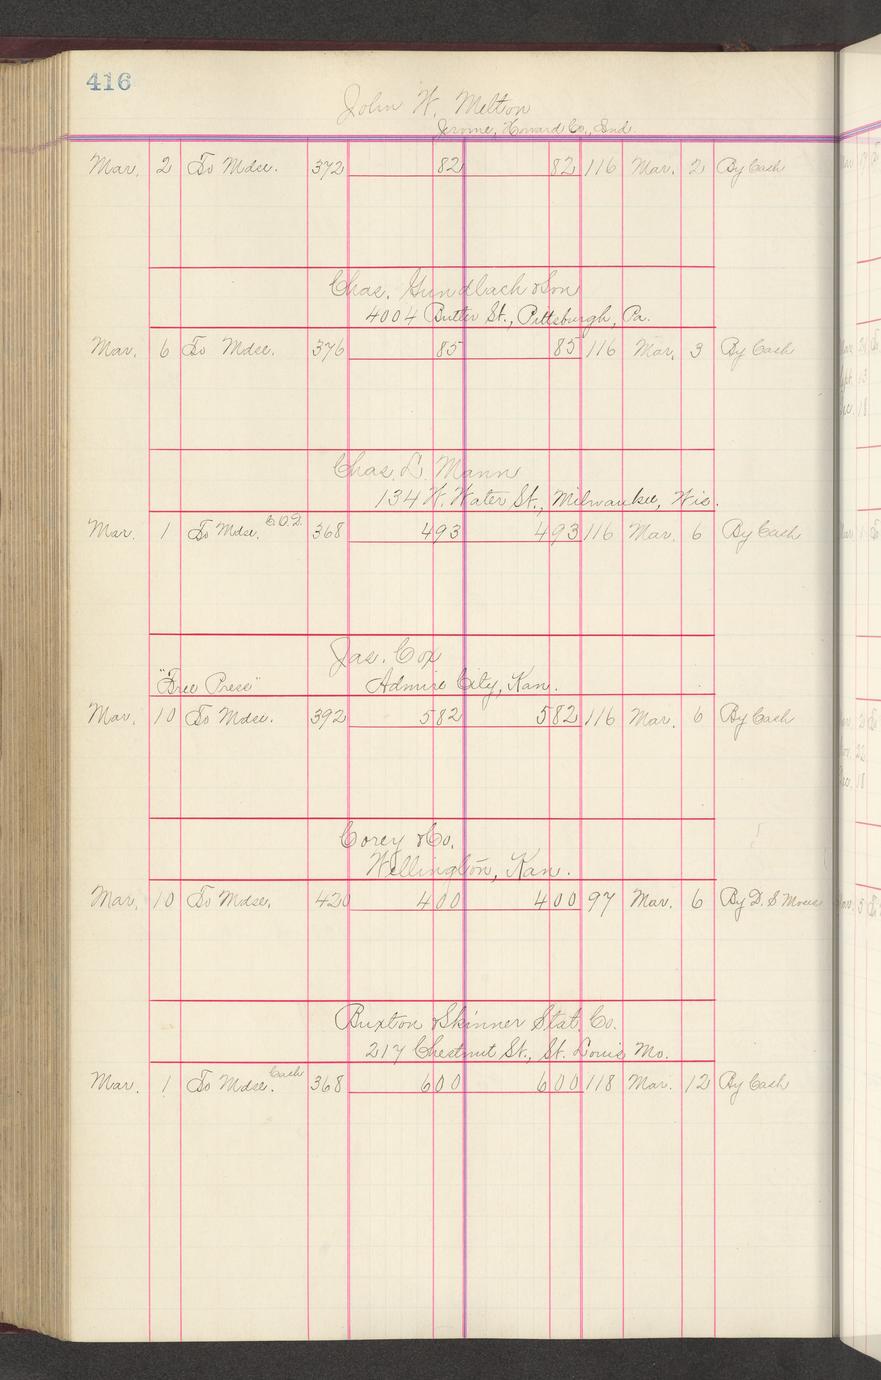 416
John W. Melton
Jerome, Howard Co., Ind.
Mar. 2 To Mdse. 372 82 82 116 Mar. 2 By Cash
Chas. Gundlach & Son
4004 Butler St., Pittsburgh, Pa.
Mar. 6 To Mdse. 376 85 85 116 Mar. 3 By Cash
Chas. L. Mann
134 W. Water St., Milwaukee, Wis.
Mar. 1 To Mdse. C.O.D. 368 493 493 116 Mar. 6 By Cash
Jas. Cox
"Free Press" Admire City, Kan.
Mar. 10 To Mdse. 392 582 582 116 Mar. 6 By Cash
Corey & Co.
Wellington, Kan.
Mar. 10 To Mdse. 420 400 400 97 Mar. 6 By D. S
Buxton & Skinner Stat. Co.
217 Chestnut St., St. Louis, Mo.
Mar. 1 To Mdse. Cash 368 600 600 118 Mar. 12 By Cash